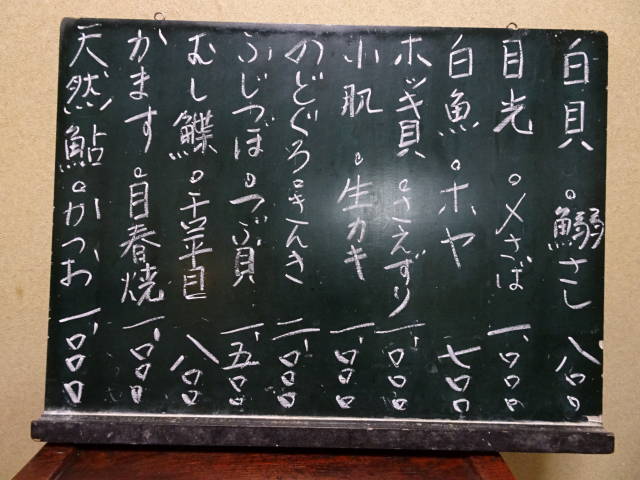 白貝。鰯さし 八00
目光。〆さば 一、000
白魚。ホヤ 七00
ホッキ貝。さえずり 一、000
小肌。生カキ 一、000
のどぐろ。きんき 二、000
ふじつぼ。つぶ貝 一、五00
むし鰈。舌平目 八00
かます。目春焼 一、000
天然鮎。かつお 一、000